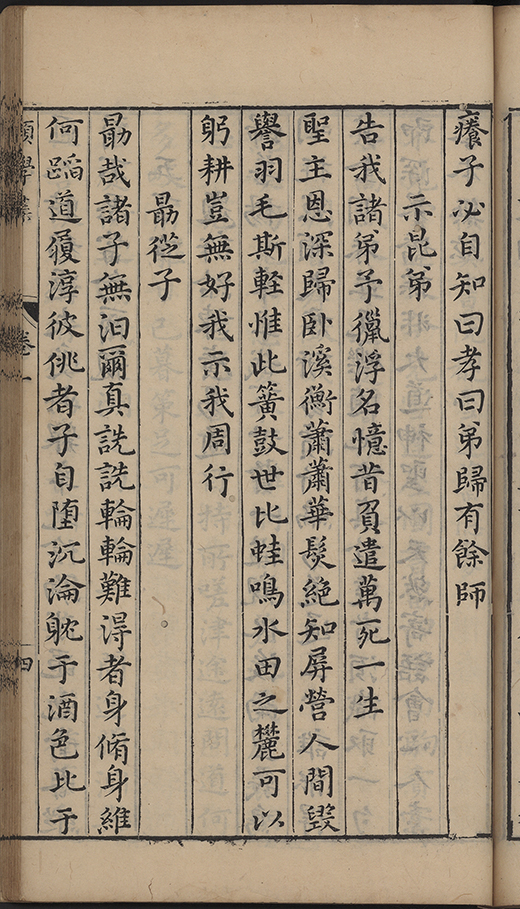 癢子必自知曰孝曰弟歸有餘師
示昆弟
告我諸弟予獵浮名憶昔負遣萬死一生
聖主恩深歸卧溪衡蕭蕭華髮絶知屏營人間毀
譽羽毛斯輕惟此簧鼓世比蛙鳴水田之麓可以
躬耕豈無好我示我周行
勗從子
勗哉諸子無汩爾真詵詵輪輪難淂者身脩身維
何蹈道履淳彼佻者子自墮沉淪躭于酒色比于
願學集 卷一 四